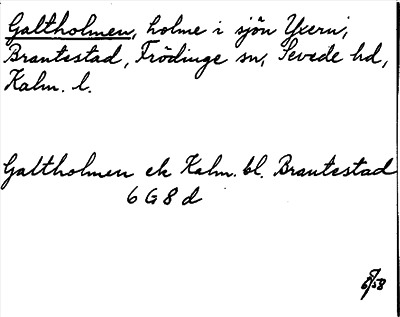 Galtholmen, holme i sjön Yxern,
Brantestad, Frödinge sn, Sevede hd,
Kalm. l.
Galtholmen ek Kalm. bl. Brantestad
6 G 8 d